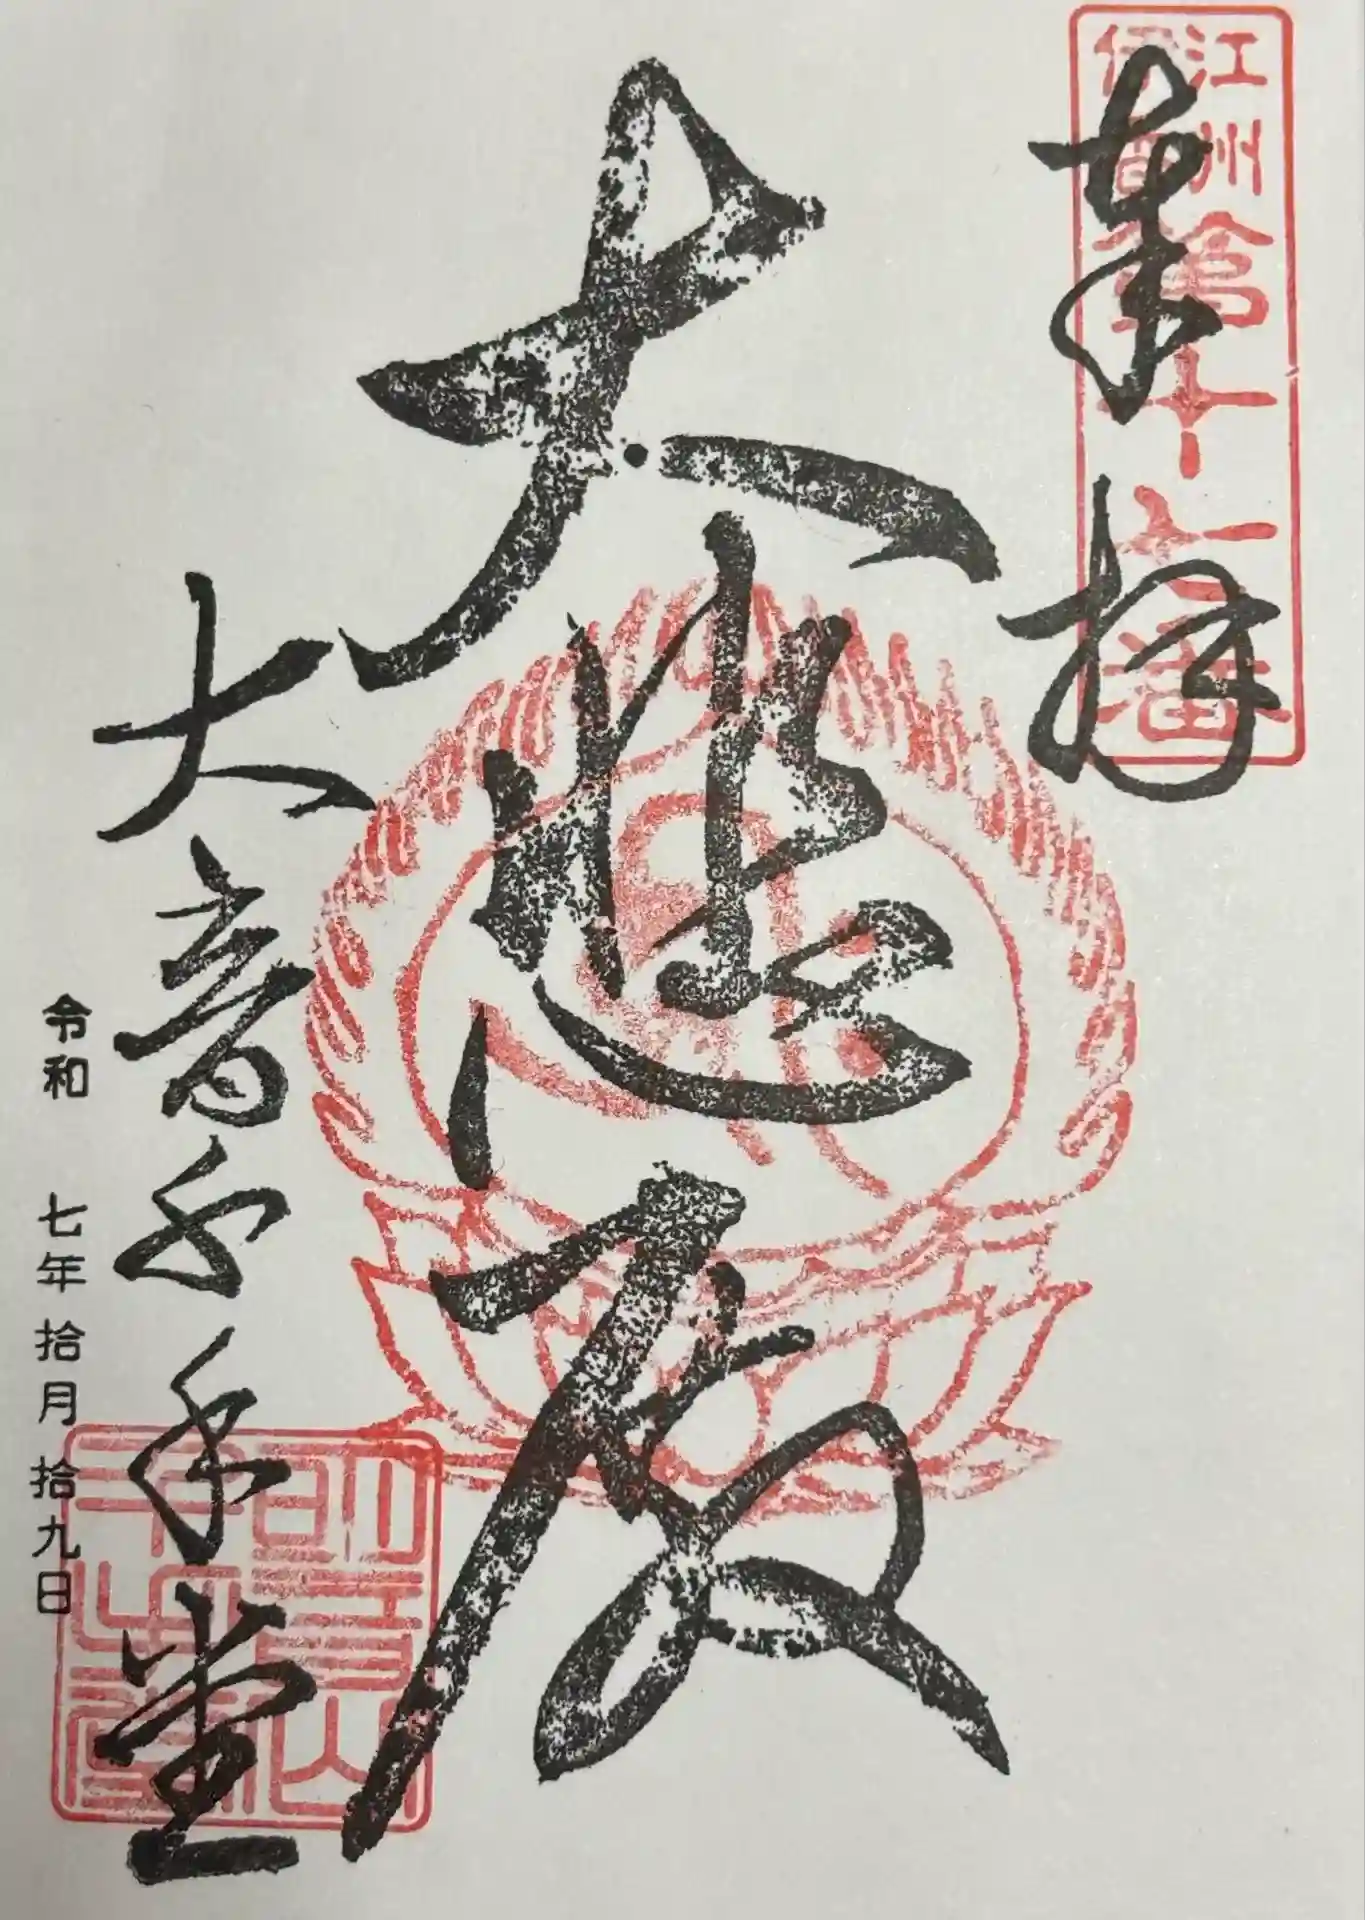 江州
伊香
第十七番
奉拝
大悲殿
大音千手堂
令和 七年拾月拾九日